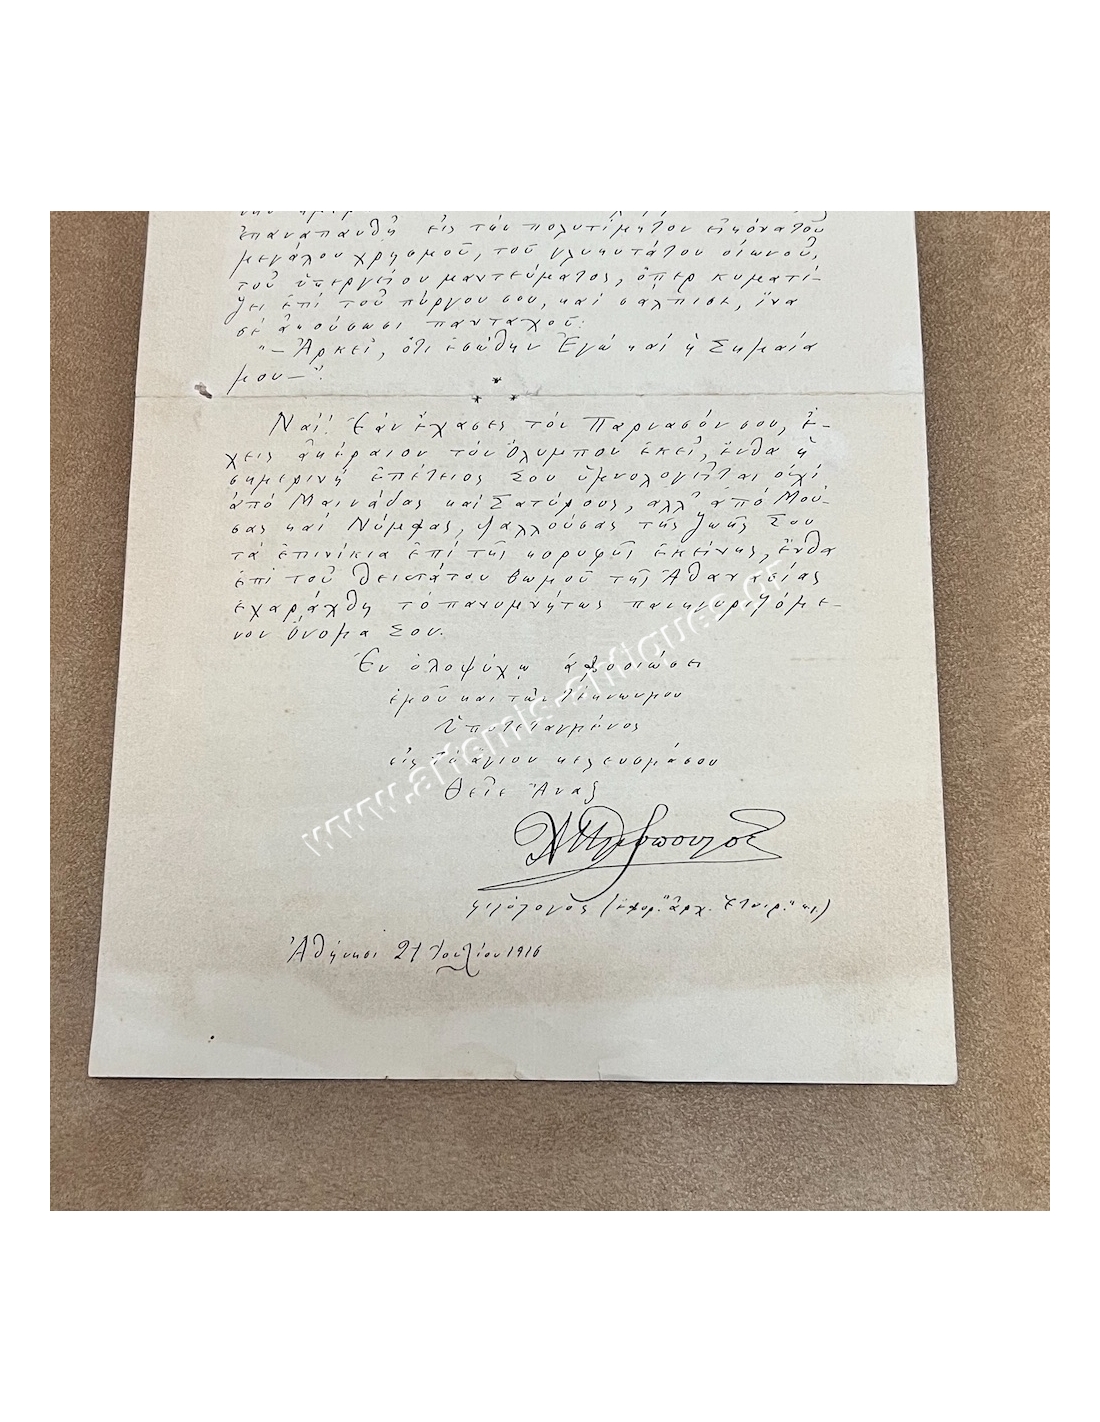 ἐπαναπαυθῇ εἰς τὴν πολυτίμητον εἰκόνα τοῦ
μεγάλου χρησμοῦ, τοῦ γλυκυτάτου οἰωνοῦ,
τοῦ ὑπεργείου μαντεύματος, ὅπερ κυματί-
ζει ἐπὶ τοῦ πύργου σου, καὶ σάλπισε, ἵνα
σὲ ἀκούσωσι πανταχοῦ:
"— Ἀρκεῖ, ὅτι ἐσώθην Ἐγὼ καὶ ἡ Σημαία
μου —"!
* * *
Ναί! Ἐὰν ἔχασες τὸν Παρνασόν σου, ἔ-
χεις ἀκέραιον τὸν Ὄλυμπον ἐκεῖ, ἔνθα ἡ
σημερινὴ ἐπέτειος Σου ὑμνολογεῖται οὐχὶ
ἀπὸ Μαινάδας καὶ Σατύρους, ἀλλ' ἀπὸ Μού-
σας καὶ Νύμφας, ψαλλούσας τῆς ζωῆς Σου
τὰ ἐπινίκια ἐπὶ τῆς κορυφῆς ἐκείνης, ἔνθα
ἐπὶ τοῦ θειοτάτου βωμοῦ τῆς Ἀθανασίας
ἐχαράχθη τὸ πανυμνήτως πανηγυριζόμε-
νον ὄνομα Σου.
Ἐν ὁλοψύχῳ ἀφοσιώσει
ἐμοῦ καὶ τῶν τέκνων μου
Ὑποτεταγμένος
εἰς τὸ ἅγιον κέλευσμά σου
Θεῖε Ἄναξ
φιλόλογος (ἐφορ. "ἀρχ. Ἑταιρ." κτ.)
Ἀθήνησι 21 Ἰουλίου 1916
www.artemis-antiques.gr